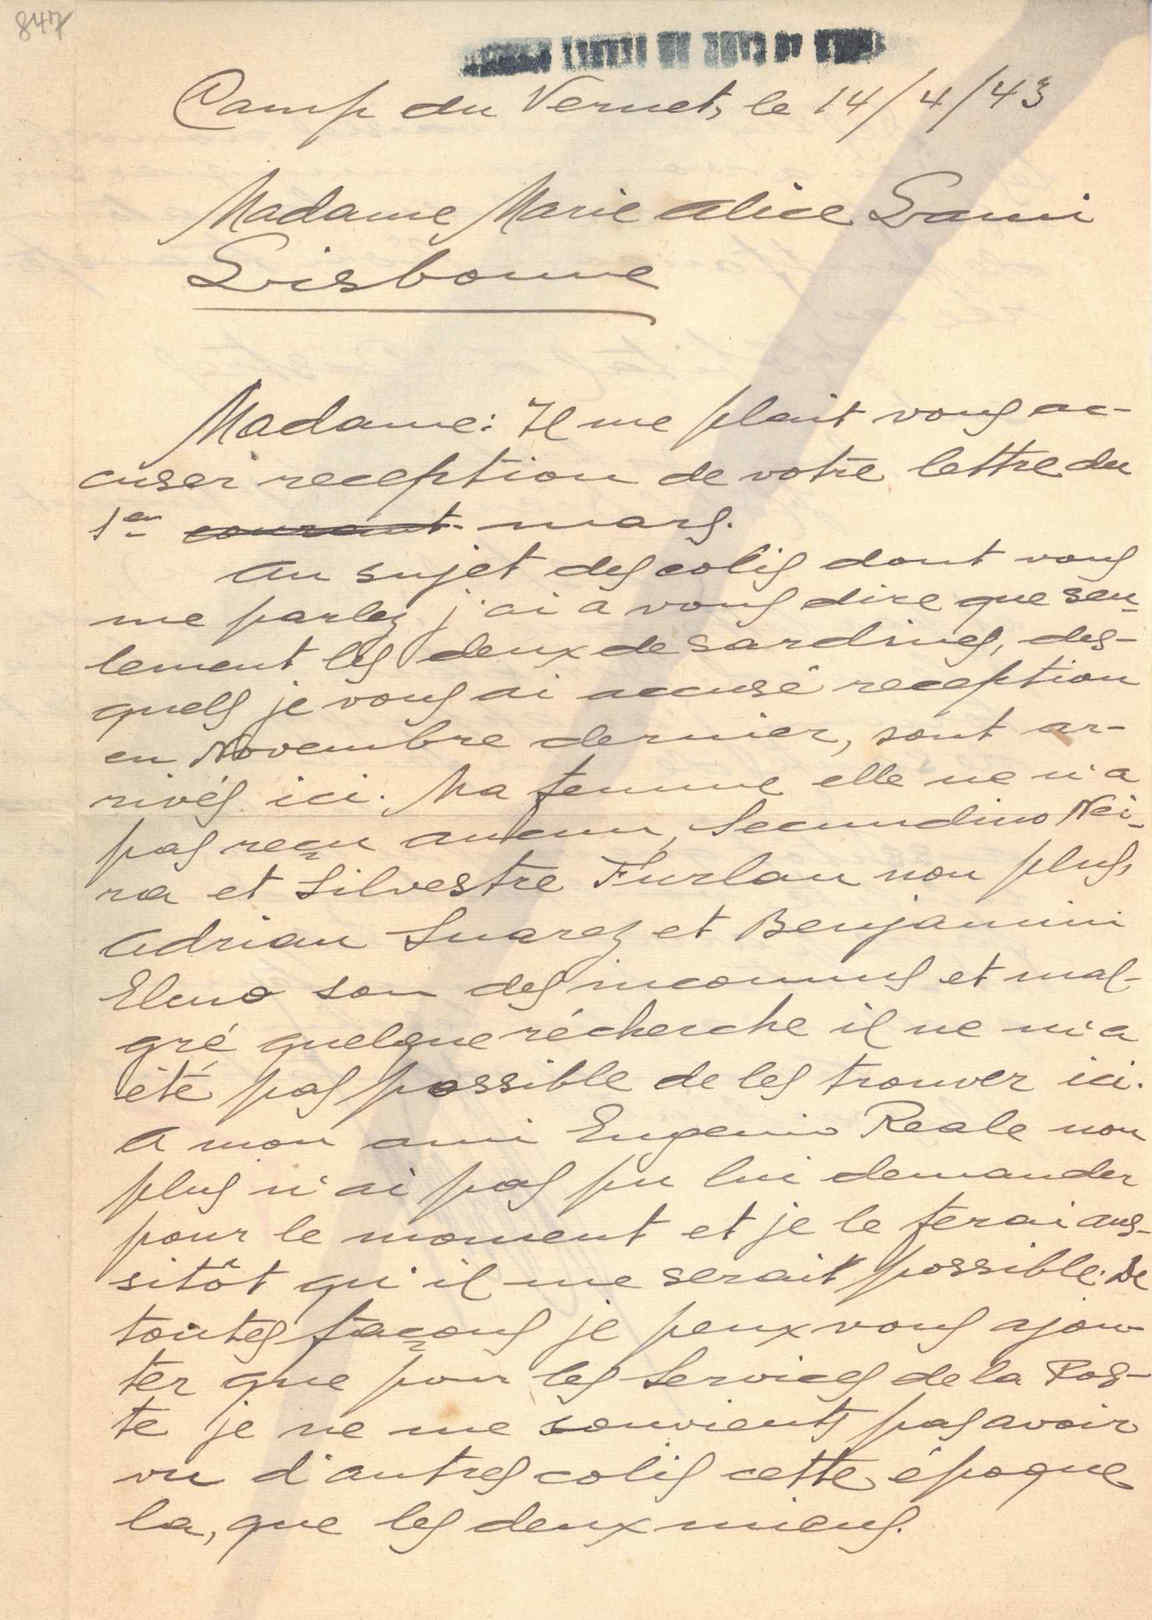 847
Camp du Vernet, le 14/4/43
Madame Marie Alice Lami
Lisbonne
Madame: Il me plait vous ac-
cuser reception de votre lettre du
1er courant mars.
Au sujet des colis dont vous
me parlez j'ai a vous dire que seu-
lement les deux de sardines, des-
quels je vous ai accusé reception
en Novembre dernier, sont ar-
rivés ici. Ma femme elle ne n'a
pas reçu aucun, Secundino Nei-
ra et Silvestre Furlan non plus,
Adrian Suarez et Benjamin
Eleno son des inconnus et mal-
gré quelque récherche il ne m'a
été pas possible de les trouver ici.
A mon ami Eugenio Reale non
plus n'ai pas pu lui demander
pour le moment et je le ferai aus-
sitôt qu'il me serait possible. De
toutes façons je peux vous ajou-
ter que pour les Services de la Pos-
te je ne me souvients pas avoir
vu d'autres colis cette époque
la, que les deux miens.